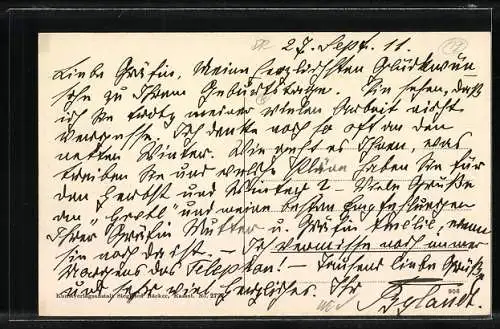 27. Sept. 11.
Liebe Gräfin, Meine herzlichsten Glückwün-
sche zu Ihrem Geburtstage. Sie sehen, daß
ich Sie trotz meiner vielen Arbeit nicht
vergesse. Ich denke noch so oft an den
netten Winter. Wie geht es Ihnen, was
treiben Sie und welche Pläne haben Sie für
den Herbst und Winter? – Viele Grüße
an und meine besten Empfehlungen
Ihrer Gräfin Mutter u. Gräfin wenn
sie noch da ist. – Ich vermisse noch immer
Morgens das Telephon! – Tausend liebe Grüße
und sehr viel Herzliches. Ihr
Kunstverlagsanstalt Bäcker, No.
Bylandt.